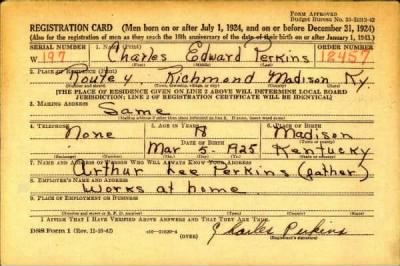 FORM APPROVED
Budget Bureau No.
REGISTRATION CARD (Men born on or after July 1, 1924, and on or before December 31, 1924)
(Also for the registration of men as they reach the 18th anniversary of the date of their birth on or after January 1, 1943.)
SERIAL NUMBER 1. NAME (Print) ORDER NUMBER
W 197 Charles Edward Perkins 12457
2. PLACE OF RESIDENCE (Print)
Route 4. Richmond Madison Ky.
(Number and street) (Town, township, village, or city) (County) (State)
[THE PLACE OF RESIDENCE GIVEN ON LINE 2 ABOVE WILL DETERMINE LOCAL BOARD
JURISDICTION; LINE 2 OF REGISTRATION CERTIFICATE WILL BE IDENTICAL]
3. MAILING ADDRESS
Same
4. TELEPHONE 5. AGE IN YEARS 6. PLACE OF BIRTH
None 18 Madison
DATE OF BIRTH
Mar 5. 1925 Kentucky
(Exchange) (Number) (Mo.) (Day) (Yr.) (State or country)
7. NAME AND ADDRESS OF PERSON WHO WILL ALWAYS KNOW YOUR ADDRESS
Arthur Lee Perkins (father)
8. EMPLOYER'S NAME AND ADDRESS
Works at home
9. PLACE OF EMPLOYMENT OR BUSINESS
(Number and street or R. F. D. number) (Town) (County) (State)
I AFFIRM THAT I HAVE VERIFIED ABOVE ANSWERS AND THAT THEY ARE TRUE.
DSS Form 1 (Rev. 11-16-42) (OVER) Charles Perkins
(Registrant's signature)